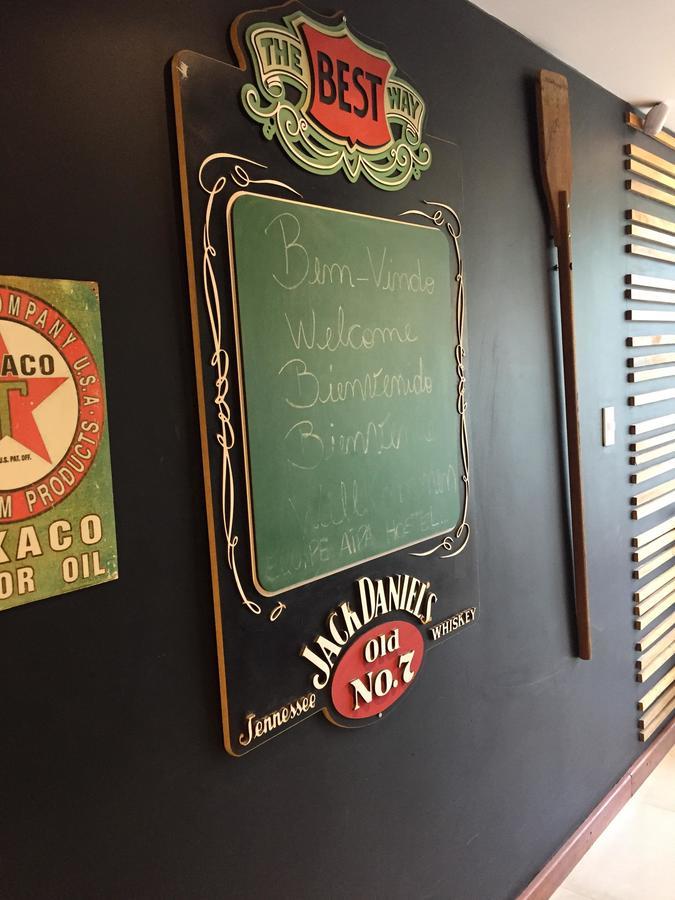 THE BEST WAY
Bem-Vindo
Welcome
Bienvenido
EQUIPE AIPA HOSTEL...
JACK DANIEL'S
Old
No.7
Tennessee
WHISKEY
COMPANY U.S.A.
ACO
T
U.S. PAT. OFF.
M PRODUCTS
XACO
OR OIL